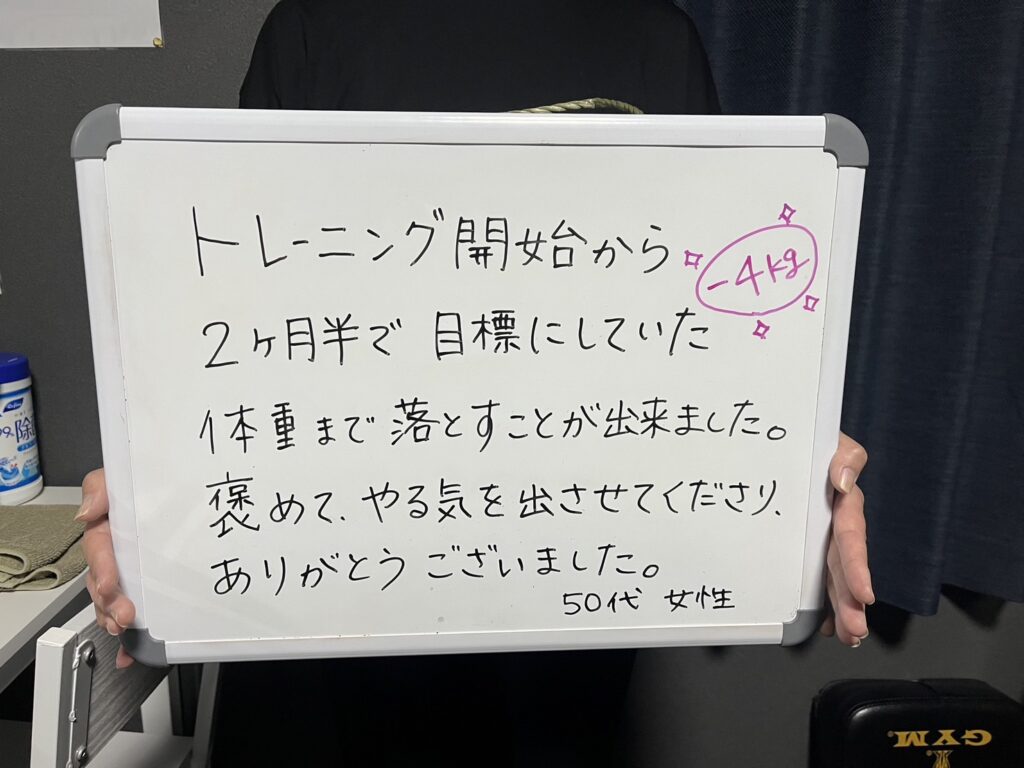 トレーニング開始から
-4kg
2ヶ月半で 目標にしていた
体重まで落とすことが出来ました。
褒めて、やる気を出させてくださり、
ありがとうございました。
50代 女性
除
GYM